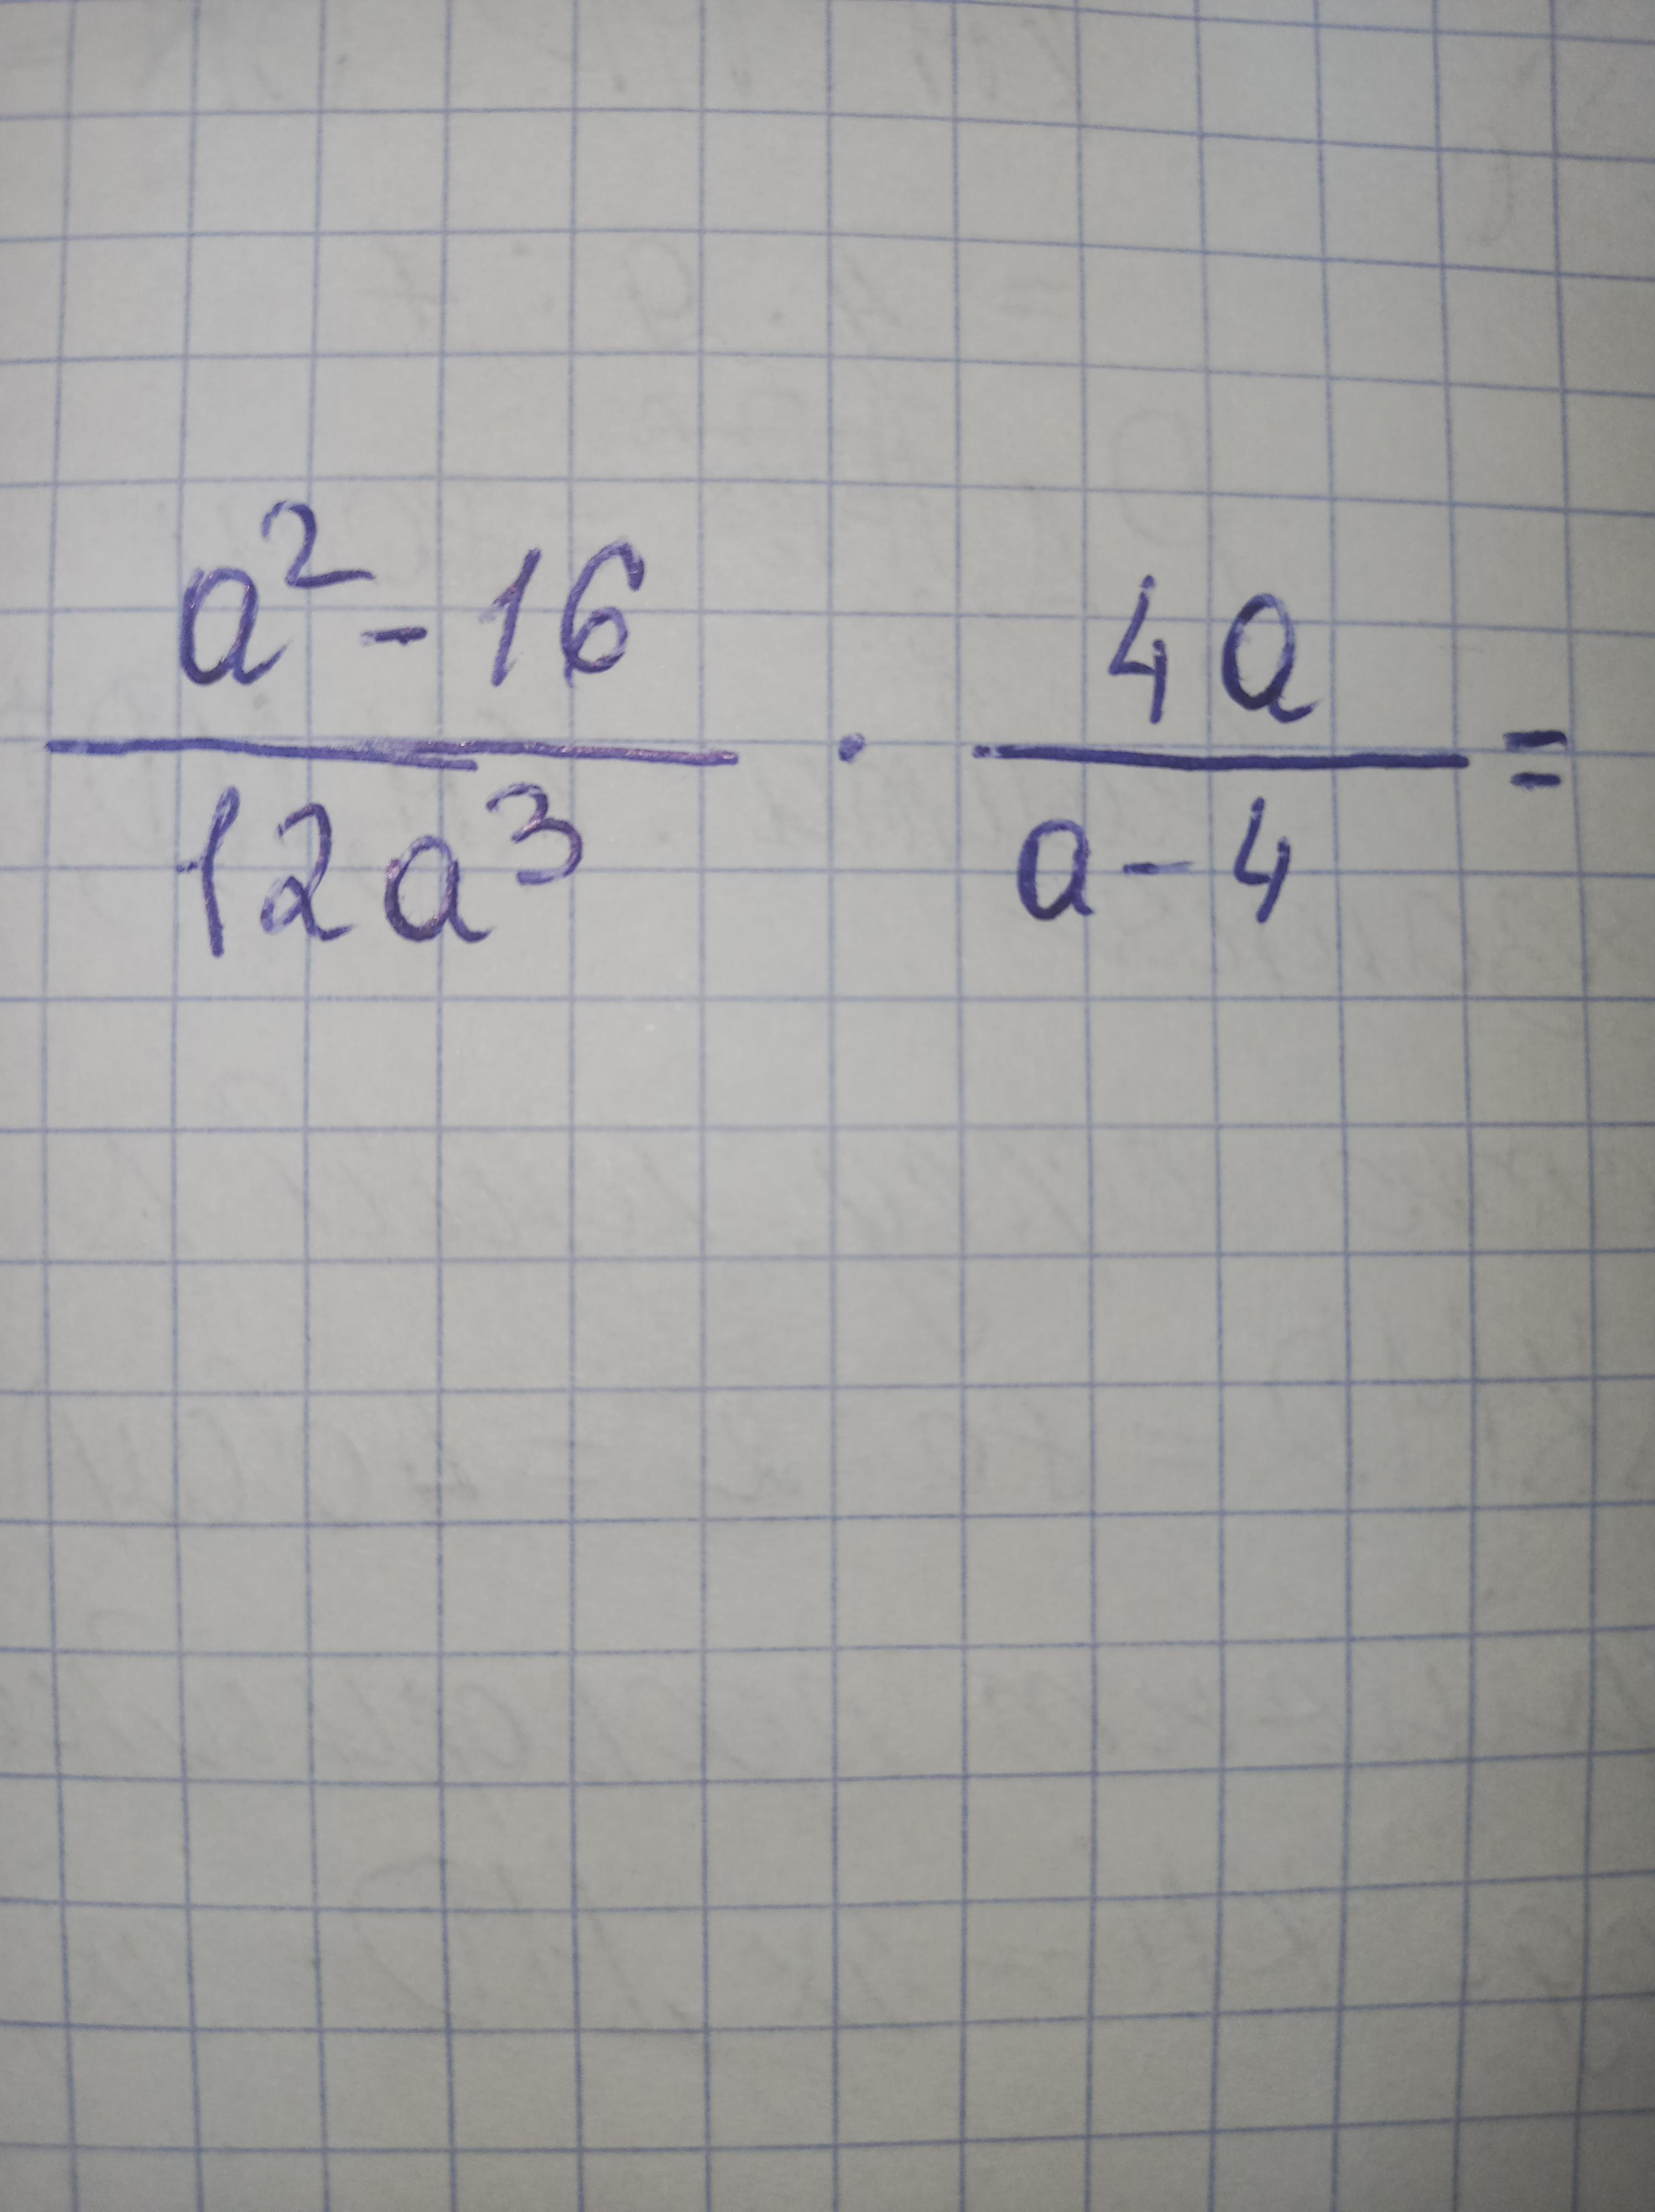 a² - 16 / 12a³ · 4a / a - 4 =